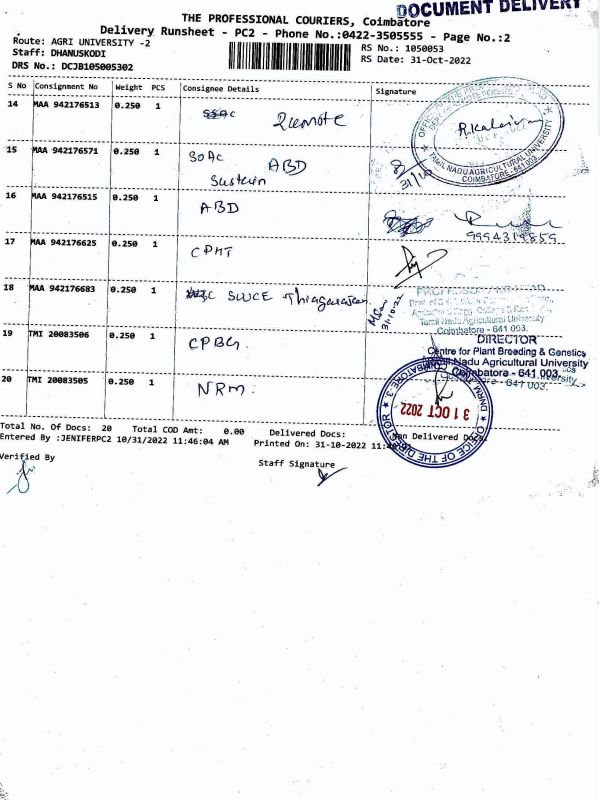 DOCUMENT DELIVERY
THE PROFESSIONAL COURIERS, Coimbatore
Delivery Runsheet - PC2 - Phone No.:0422-3505555 - Page No.:2
Route: AGRI UNIVERSITY -2
RS No.: 1050053
Staff: DHANUSKODI
RS Date: 31-Oct-2022
DRS No.: DCJB105005302
S No Consignment No Weight PCS Consignee Details Signature
14 MAA 942176513 0.250 1 Remote
TAMIL NADU AGRICULTURAL UNIVERSITY
COIMBATORE-641 003.
15 MAA 942176571 0.250 1 SOAC ABD
31/10
16 MAA 942176515 0.250 1 ABD
17 MAA 942176625 0.250 1 CPMT
18 MAA 942176683 0.250 1 SWCE Thiagarajan
31-10-22
Tamil Nadu Agricultural University
Coimbatore - 641 003.
19 TMI 20083506 0.250 1 CPBG.
DIRECTOR
Centre for Plant Breeding & Genetics
Tamil Nadu Agricultural University
Coimbatore - 641 003.
20 TMI 20083505 0.250 1 NRM.
OFFICE OF THE DIRECTOR
31 OCT 2022
Total No. Of Docs: 20 Total COD Amt: 0.00 Delivered Docs: Non Delivered Docs:
Entered By :JENIFERPC2 10/31/2022 11:46:04 AM Printed On: 31-10-2022
Verified By
Staff Signature